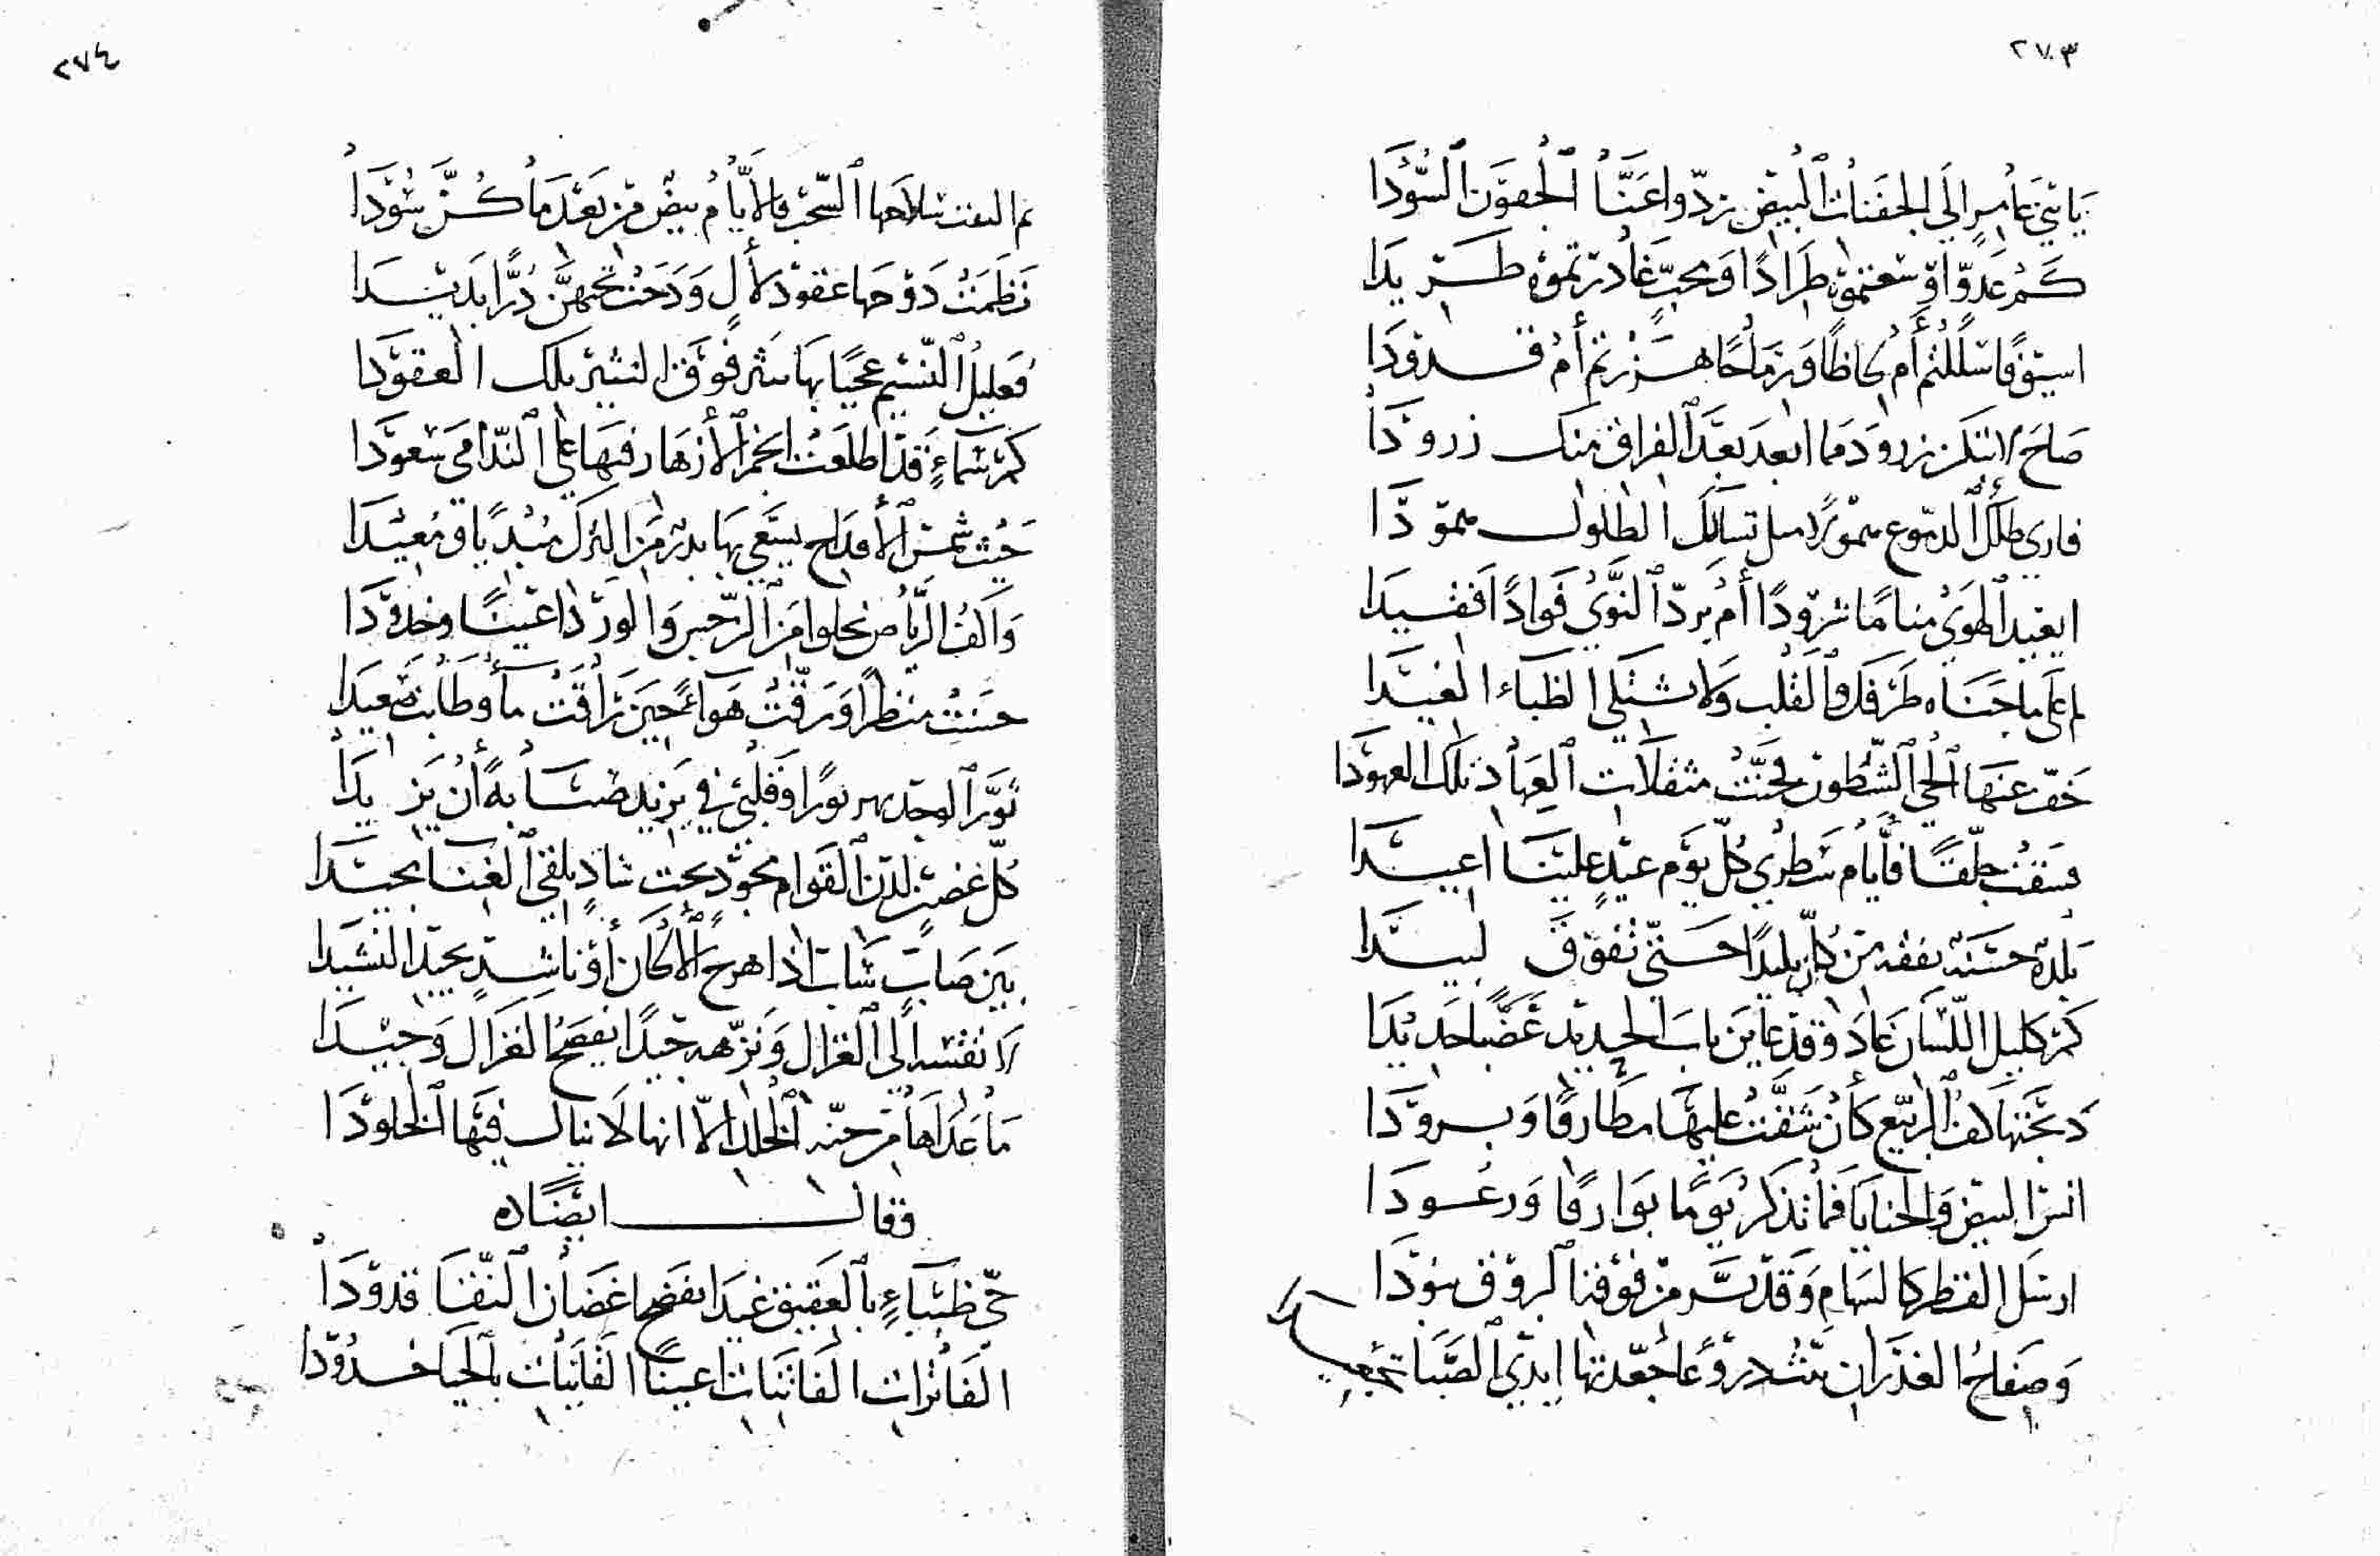 ٢٧٣
يا بني عامرٍ إلى الجفنات البيض ردّوا عنّا الجفون السّودا
كم عدوّا أوسعتموه طرادًا ومحبّ غادرتموه طريدا
اسيوفًا سللتم أم لحاظًا ورماحًا هززتم أم قدودا
صاح لا تنكرن زرود فما ابعد بعد الفراق منك زرودا
فاري طلك الدموع همولا تسالك الطلول همودا
ايعيد الهوى مناما شرودًا أم يردّ النّوى فوادًا فقيدا
لم على ما جناه طرفك والقلب ولا تشتكي الظباء الغيدا
خفّ عنها الحي الشّطون فحنّت مثقلات العهاد تلك العهودا
فسقت جلّقًا فأيام شطري كلّ يوم عيدٍ علينا اعيدا
بلدة حسنه يفقه من كان بليدًا حتّى تفوق لبيدا
كم كليل اللّسان عاد وقد عاين باب الحديد عضبًا حديدا
دبّجتها كف الربيع كأن شقّت عليها مطارفًا وبرودا
انس البيض والحنايا فما تذكر يومًا بوارقًا ورعودا
ارسل القطر كالسهام وقد نشر من فوقنا البروق بنودا
وصفاح الغدران مثل دروعٍ اجعّدتها ايدي الصّبا تجعيدا
٢٧٤
ثم القت سلاحها السّحب فالأيّام بيض من بعد ما كنّ سودا
نظمت دوحها عقود لآلٍ ودحت تحتهنّ درًّا بديدا
فعليل النّسيم عجبًا بها ينثر فوق النثير تلك العقودا
كم سماءٍ قد اطلعت انجم الأزهار فيها على النّدامى سعودا
حيث شمس الأقداح يسعى بها بدر من الترك مبديًا ومعيدا
واكف الرّياض تجلوا من النّرجس والورد اعينًا وخدودا
حسنت منظرًا ورقّت هواءً حين راقت مآء وطابت صعيدا
ثورا الوجد بهر ثورا وقلبي في يزيد ضنّا به أن يزيدا
كلّ غصن لدن القوام يجود تحت شادٍ يلقى الغنا يجيدا
بين صابٍ شابٍ اذا هرج الألحان أو ناشدٍ يجيد النشيدا
لا تقسه إلى الغزال ونزّهه جيدًا يفضح الغزال وجيدا
ما عداها من جنّة الخلد إلاّ انها لا ينال فيها الخلودا
وقال ايضًا
حيّ ظباءٍ بالعقيق غيدا تفضح اغصان النّقا قدودا
الفاترات الفاتنات اعينًا القانيات بالحيا خدودا